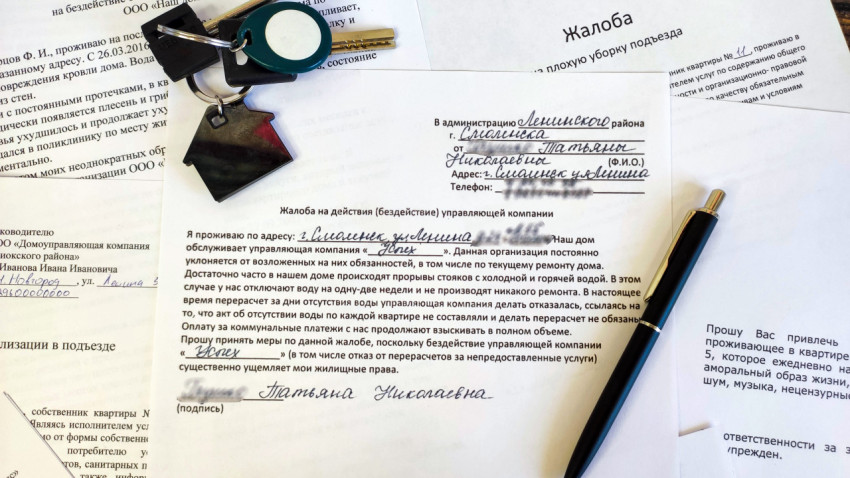 на бездействие
ООО «Наш дом
рцов Ф. И., проживаю на посл
казанному адресу. С 26.03.2016
овреждения кровли дома. Вода
из стен.
и с постоянными протечками, в кв
дически появляется плесень и гриб
вья ухудшилось и продолжает уху
щался в поликлинику по месту ж
ментально.
том моих неоднократных обр
рганизации ООО «
состояние
Жалоба
на плохую уборку подъезда
ник квартиры № 11, проживаю в
телем услуг по содержанию общего
ности и организационно- правовой
по качеству обязательным
и условиям
В администрацию Ленинского района
г. Смолинска
от Татьяны
Николаевны (Ф.И.О.)
Адрес: г. Смолинск ул Ленина
Телефон:
Жалоба на действия (бездействие) управляющей компании
Я проживаю по адресу: г. Смолинск ул Ленина Наш дом
обслуживает управляющая компания « Успех ». Данная организация постоянно
уклоняется от возложенных на них обязанностей, в том числе по текущему ремонту дома.
Достаточно часто в нашем доме происходят прорывы стояков с холодной и горячей водой. В этом
случае у нас отключают воду на одну-две недели и не производят никакого ремонта. В настоящее
время перерасчет за дни отсутствия воды управляющая компания делать отказалась, ссылаясь на
то, что акт об отсутствии воды по каждой квартире не составляли и делать перерасчет не обязаны
Оплату за коммунальные платежи с нас продолжают взыскивать в полном объеме.
Прошу принять меры по данной жалобе, поскольку бездействие управляющей компании
« Успех » (в том числе отказ от перерасчетов за непредоставленные услуги)
существенно ущемляет мои жилищные права.
Татьяна Николаевна
(подпись)
ководителю
ОО «Домоуправляющая компания
иокского района»
Иванова Ивана Ивановича
Н. Новгород, ул. Ленина 5
9600000000
ализации в подъезде
собственник квартиры №
Являясь исполнителем усл
мо от формы собственно
потребителю ус
тов, санитарных п
также инфор
Прошу Вас привлечь
проживающее в квартире
5, которое ежедневно на
аморальный образ жизни,
шум, музыка, нецензурные
ответственности за з
упрежден.